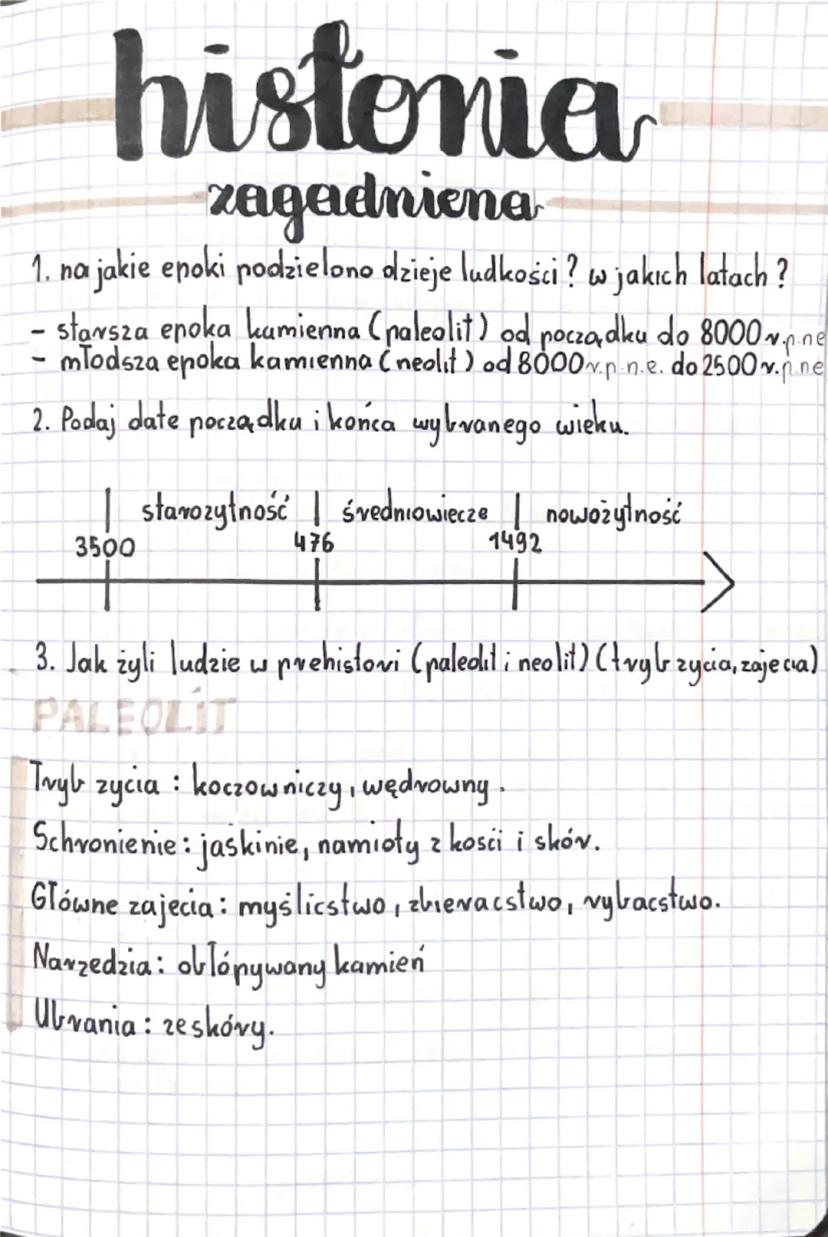 historia
zagadniena
1. na jakie epoki podzielono dzieje ludkości? w jakich latach?
- starsza epoka kamienna (paleolit) od począdku do 8000 r.p.ne
- młodsza epoka kamienna (neolit) od 8000 r.p.n.e. do 2500 r.p.ne
2. Podaj date począdku i końca wybranego wieku.
starozytność średniowiecze nowożytność
3500 476 1492
3. Jak żyli ludzie w prehistori (paleolit i neolit) (tryb zycia, zajecia)
PALEOLIT
Tryb zycia : koczowniczy, wędrowny.
Schronienie : jaskinie, namioty z kości i skór.
Główne zajecia : myślicstwo, zbieracstwo, rybacstwo.
Narzedzia : obłópywany kamień
Ubrania : ze skóry.